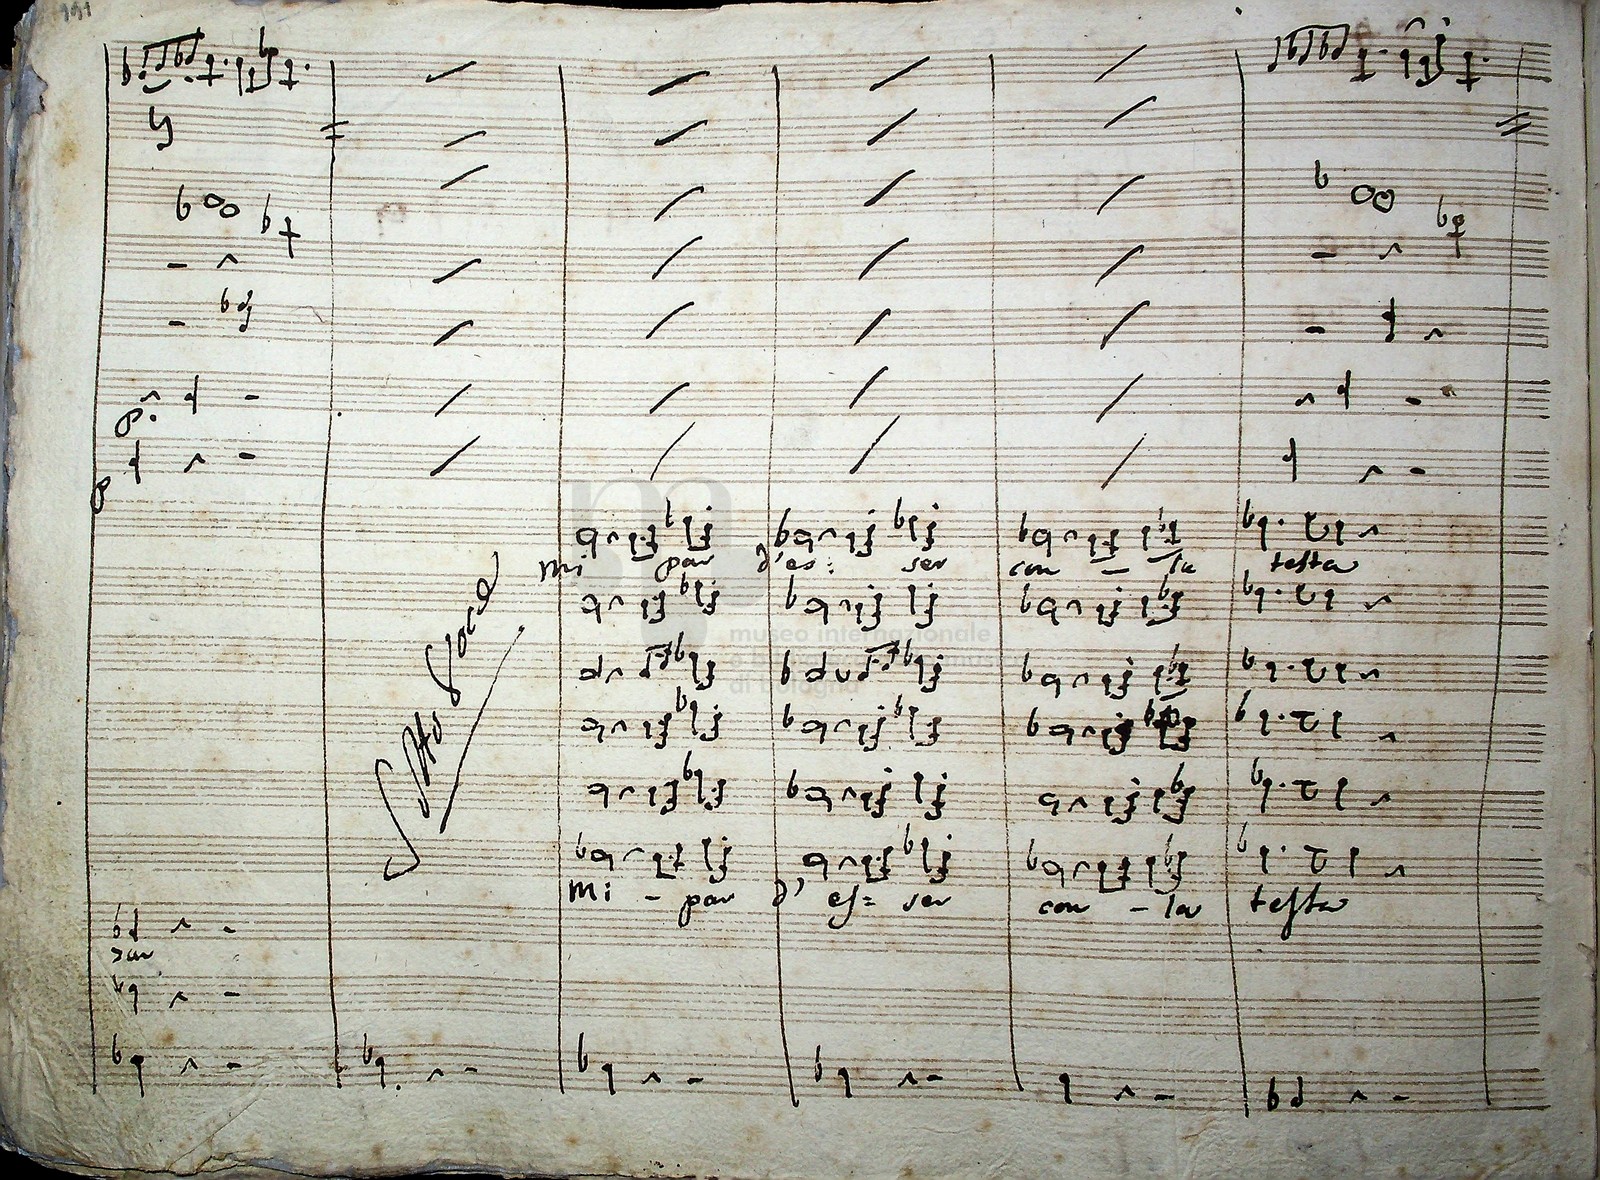 191
mi par d'es: ser con - la testa
Sotto Voce
mi - par d' es= ser con - la testa
museo internazionale
e biblioteca della musica
di bologna